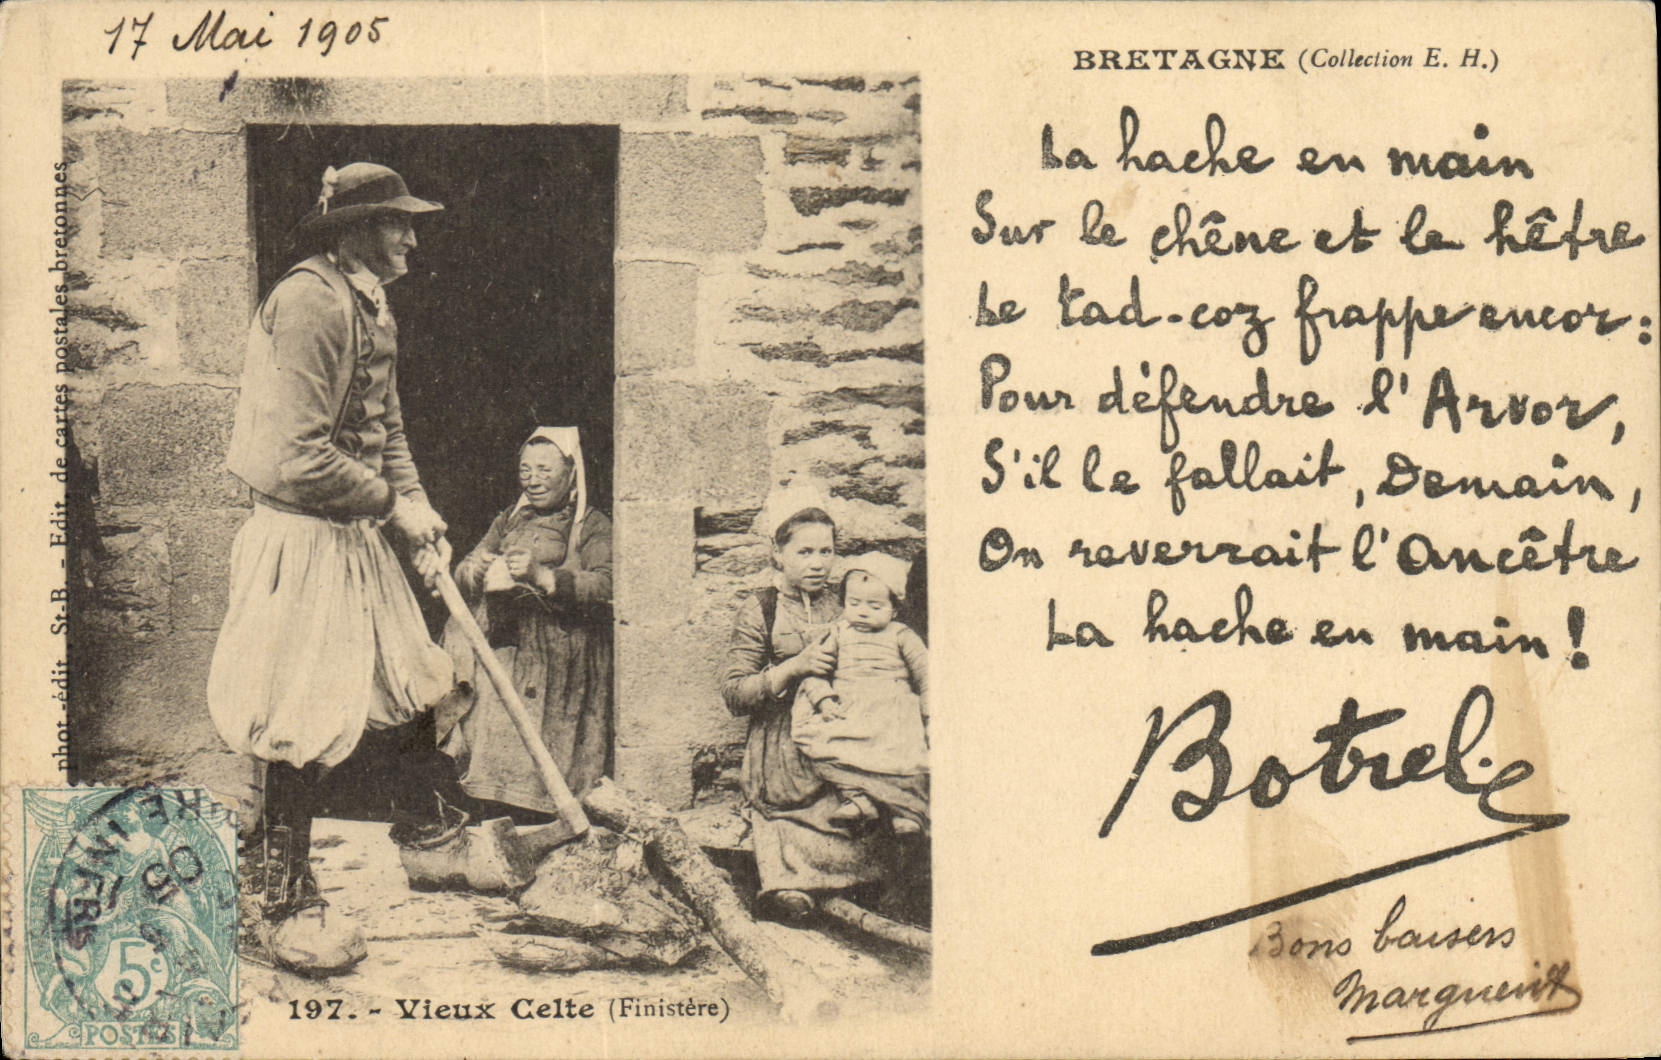 17 Mai 1905
BRETAGNE (Collection E. H.)
La hache en main
Sur le chêne et le hêtre
Le Tad-coz frappe encor :
Pour défendre l'Arvor,
S'il le fallait, Demain,
On reverrait l'Ancêtre
La hache en main !
Botrel.
Bons baisers
Marguerite
phot.-édit. St-B. - Edit. de cartes postales bretonnes
197. - Vieux Celte (Finistère)
RE INFRE
05
5c
POSTES